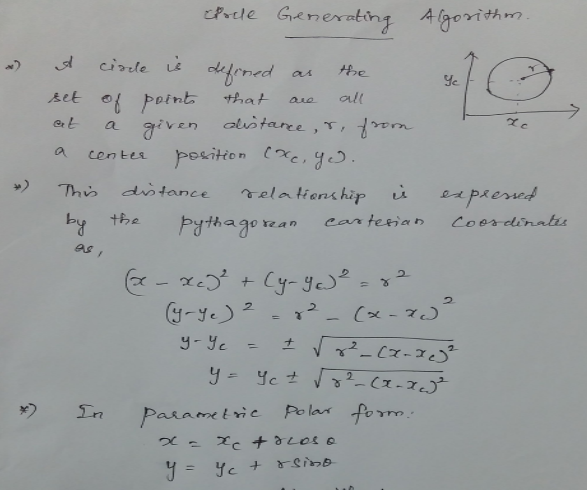 Circle Generating Algorithm.
*) A circle is defined as the
set of points that are all
at a given distance, r, from
a center position (xc, yc).
yc
r
xc
*) This distance relationship is expressed
by the pythagorean cartesian coordinates
as,
(x - xc)² + (y-yc)² = r²
(y-yc)² = r² - (x - xc)²
y-yc = ± √r²-(x-xc)²
y = yc ± √r²-(x-xc)²
*) In Parametric Polar form:
x = xc + rcosθ
y = yc + rsinθ